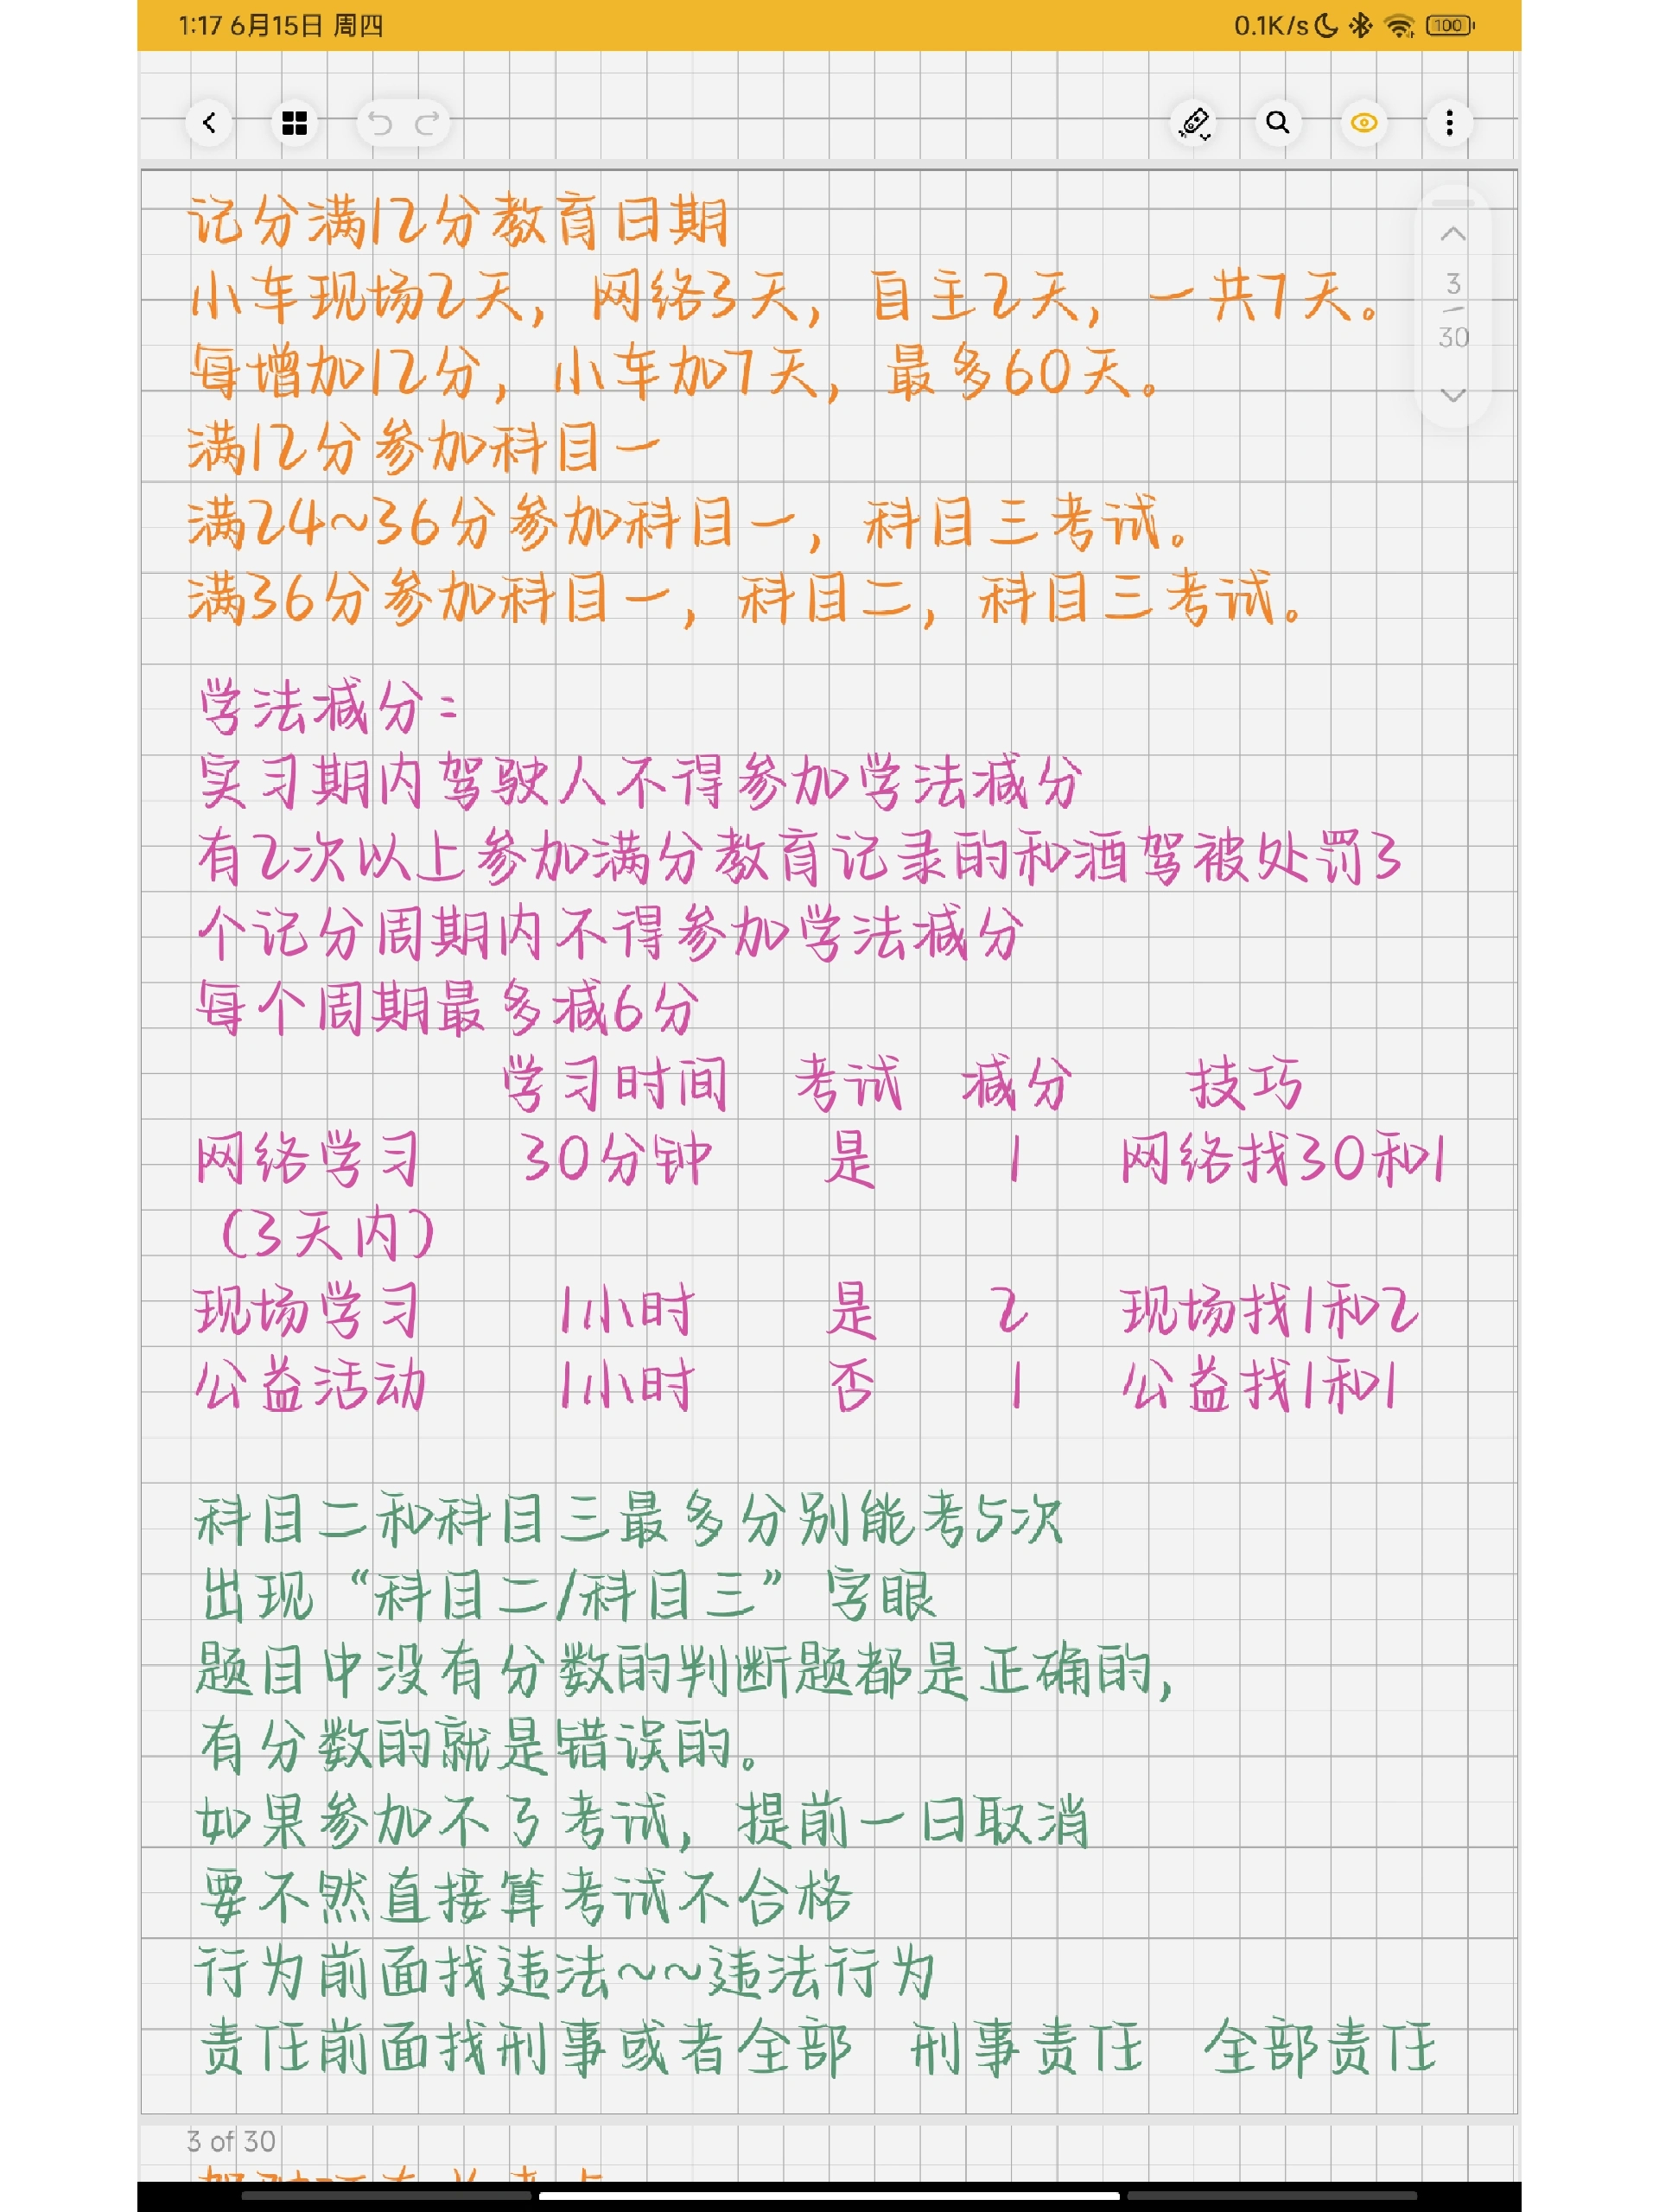 1:17 6月15日 周四 0.1K/s 100
记分满12分教育日期
小车现场2天,网络3天,自主2天,一共7天。
3
30
每增加12分,小车加7天,最多60天。
满12分参加科目一
满24~36分参加科目一,科目三考试。
满36分参加科目一,科目二,科目三考试。
学法减分:
实习期内驾驶人不得参加学法减分
有2次以上参加满分教育记录的和酒驾被处罚3
个记分周期内不得参加学法减分
每个周期最多减6分
学习时间 考试 减分 技巧
网络学习 30分钟 是 1 网络找30和1
(3天内)
现场学习 1小时 是 2 现场找1和2
公益活动 1小时 否 1 公益找1和1
科目二和科目三最多分别能考5次
出现“科目二/科目三”字眼
题目中没有分数的判断题都是正确的,
有分数的就是错误的。
如果参加不了考试,提前一日取消
要不然直接算考试不合格
行为前面找违法~~违法行为
责任前面找刑事或者全部 刑事责任 全部责任
3 of 30